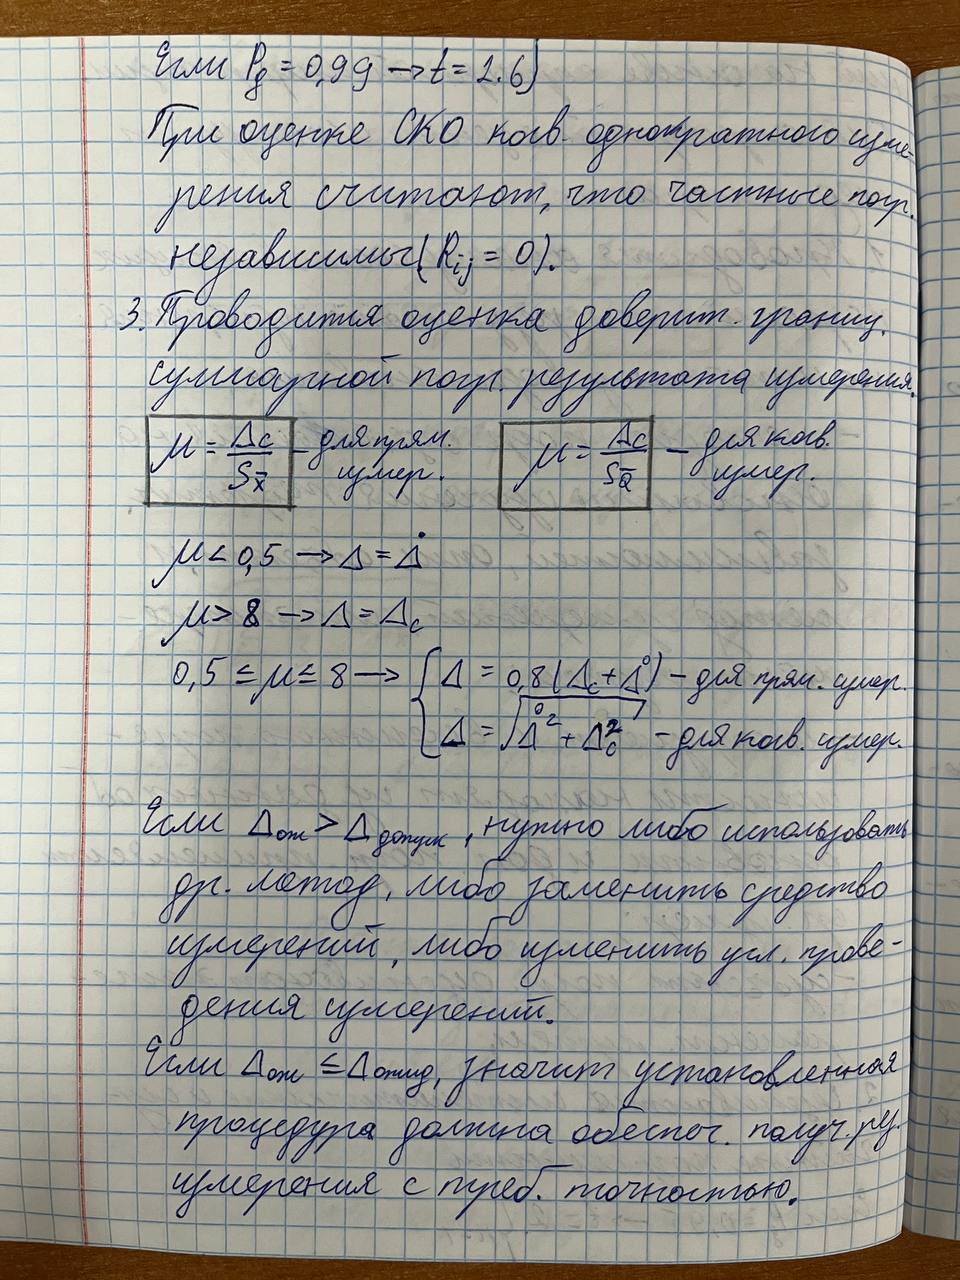 Если Pg = 0,99 → t = 2.6)
При оценке СКО косв. однократного изме-
рения считают, что частные погр.
независимы (Rij = 0).
3. Проводится оценка доверит. границ.
суммарной погр. результата измерения.
μ = Δc / Sx̄ – для прям. измер.
μ = Δc / SQ̄ – для косв. измер.
μ < 0,5 → Δ = Δ̊
μ > 8 → Δ = Δc
0,5 ≤ μ ≤ 8 → { Δ = 0,8(Δc + Δ̊) – для прям. измер.
Δ = √(Δ̊² + Δc²) – для косв. измер.
Если Δож > Δдопуск, нужно либо использовать
др. метод, либо заменить средство
измерений, либо изменить усл. прове-
дения измерений.
Если Δож ≤ Δожид, значит установленная
процедура должна обеспеч. получ. рез.
измерения с треб. точностью.